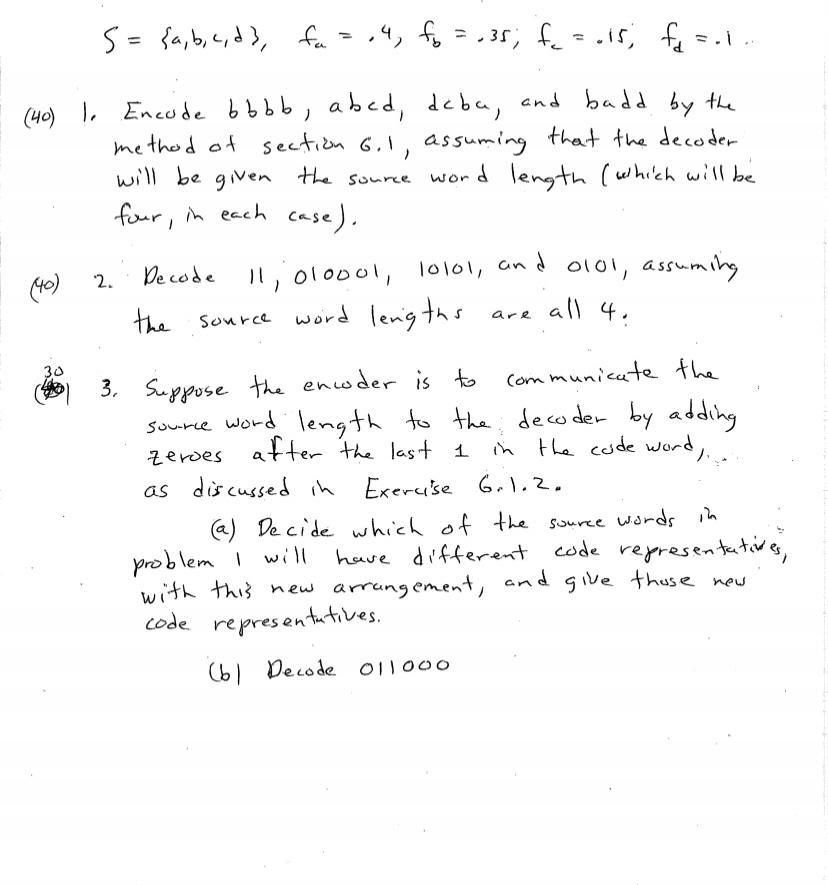 S = {a,b,c,d}, fa = .4, fb = .35, fc = .15, fd = .1 .
(40) 1. Encode bbbb, abcd, dcba, and badd by the
method of section 6.1, assuming that the decoder
will be given the source word length (which will be
four, in each case).
(40) 2. Decode 11, 010001, 10101, and 0101, assuming
the source word lengths are all 4.
30
( ) 3. Suppose the encoder is to communicate the
source word length to the decoder by adding
zeroes after the last 1 in the code word,
as discussed in Exercise 6.1.2.
(a) Decide which of the source words in
problem 1 will have different code representatives,
with this new arrangement, and give those new
code representatives.
(b) Decode 011000